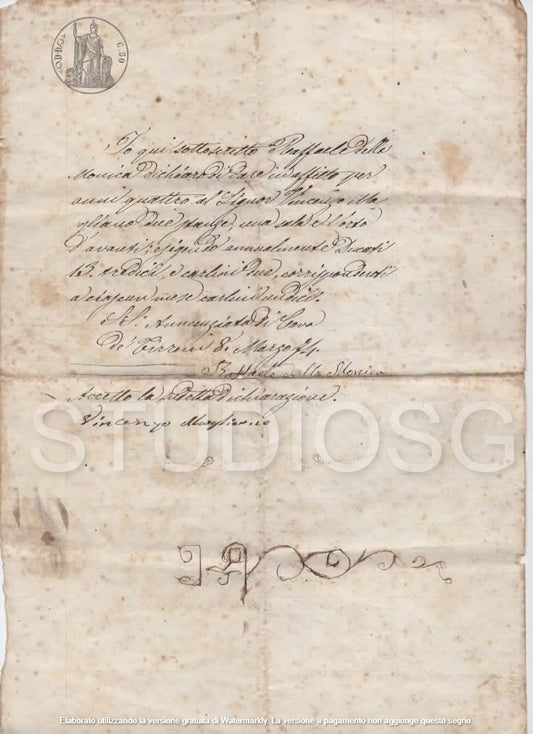 C. 50
Io qui sottoscritto Raffaele della
Monica dichiaro di dare in affitto per
anni quattro al Signor Vincenzo Ma
gliano due stanze, una sala e l'orto
d'avanti; esigendo annualmente Ducati
13. tredici, e carlini due, corrispondenti
a ciascun mese carlini undici.
Annunziata di Cava
de' Tirreni 8. Marzo
della Monica
Accetto la sudetta dichiarazione.
Vincenzo Magliano
STUDIOSG
Elaborato utilizzando la versione gratuita di Watermarkly. La versione a pagamento non aggiunge questo segno.